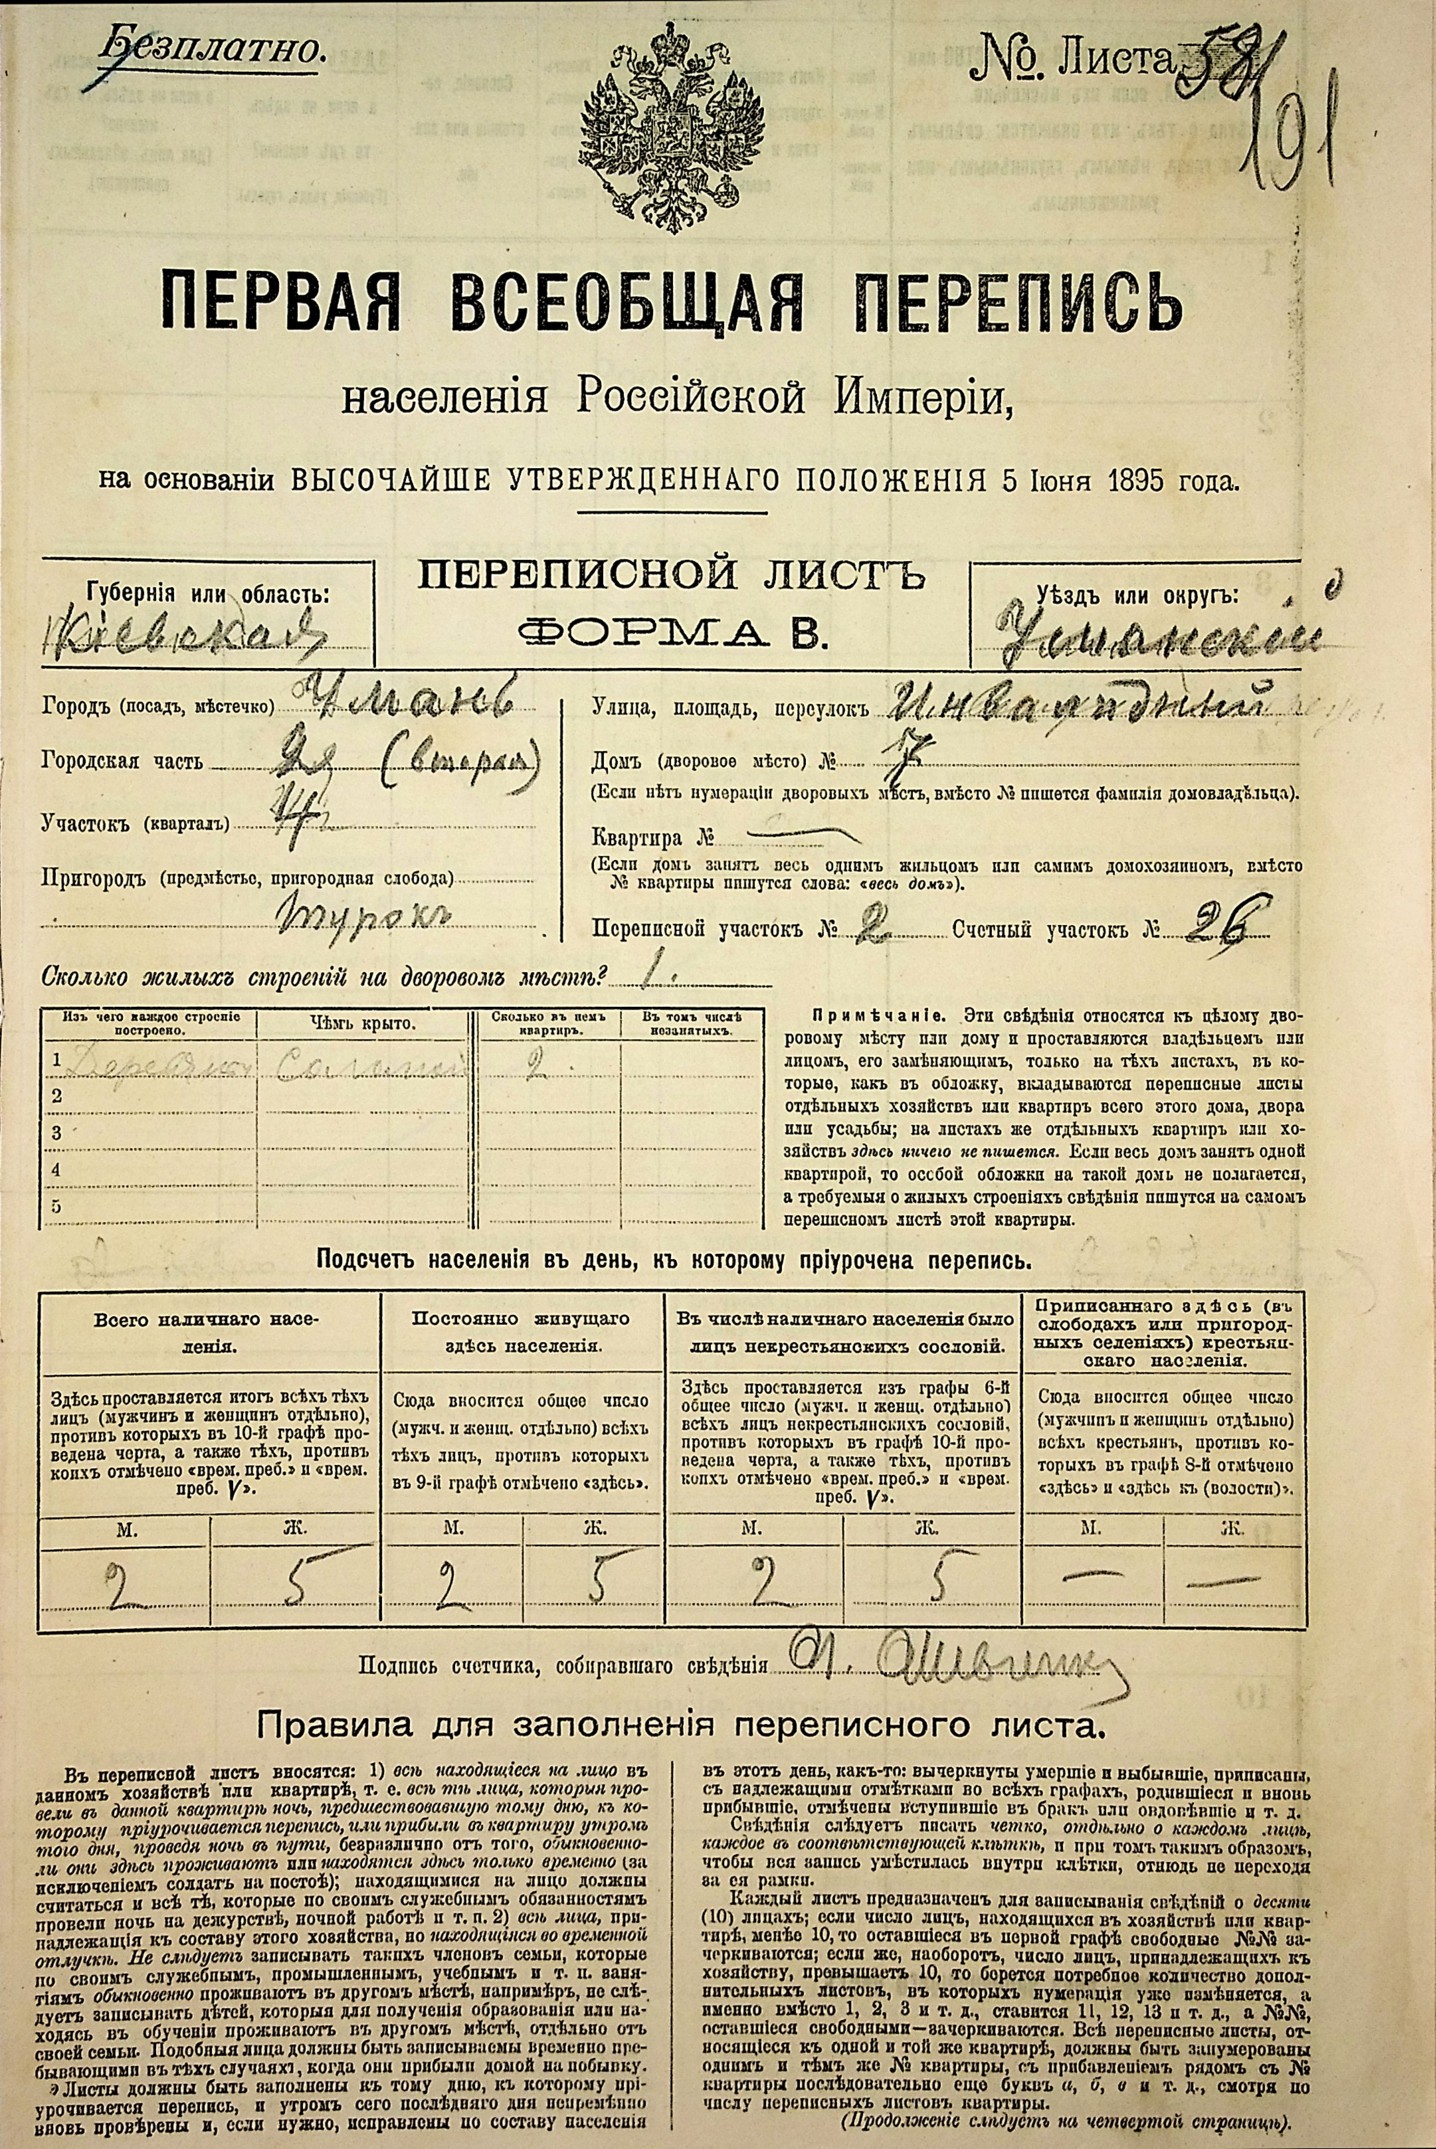 Безплатно.
№. Листа 58
191
ПЕРВАЯ ВСЕОБЩАЯ ПЕРЕПИСЬ
населенія Россійской Имперіи,
на основаніи ВЫСОЧАЙШЕ УТВЕРЖДЕННАГО ПОЛОЖЕНІЯ 5 Іюня 1895 года.
Губернія или область:
Кіевская
ПЕРЕПИСНОЙ ЛИСТЪ
ФОРМА В.
Уѣздъ или округъ:
Уманскій
Городъ (посадъ, мѣстечко) Умань
Городская часть 2я (вторая)
Участокъ (кварталъ) 4
Пригородъ (предмѣстье, пригородная слобода)
Турокъ
Улица, площадь, переулокъ Инвалидный
Домъ (дворовое мѣсто) № 7
(Если нѣтъ нумераціи дворовыхъ мѣстъ, вмѣсто № пишется фамилія домовладѣльца).
Квартира № —
(Если домъ занятъ весь однимъ жильцомъ или самимъ домохозяиномъ, вмѣсто
№ квартиры пишутся слова: «весь домъ»).
Переписной участокъ № 2 Счетный участокъ № 26
Сколько жилыхъ строеній на дворовомъ мѣстѣ? 1.
Изъ чего каждое строеніе построено.
Чѣмъ крыто.
Сколько въ немъ квартиръ.
Въ томъ числѣ незанятыхъ.
1 Соломой 2
2
3
4
5
Примѣчаніе. Эти свѣдѣнія относятся къ цѣлому дво-
ровому мѣсту или дому и проставляются владѣльцемъ или
лицомъ, его замѣняющимъ, только на тѣхъ листахъ, въ ко-
торые, какъ въ обложку, вкладываются переписные листы
отдѣльныхъ хозяйствъ или квартиръ всего этого дома, двора
или усадьбы; на листахъ же отдѣльныхъ квартиръ или хо-
зяйствъ здѣсь ничего не пишется. Если весь домъ занятъ одной
квартирой, то особой обложки на такой домъ не полагается,
а требуемыя о жилыхъ строеніяхъ свѣдѣнія пишутся на самомъ
переписномъ листѣ этой квартиры.
Подсчетъ населенія въ день, къ которому пріурочена перепись.
Всего наличнаго насе-
ленія.
Здѣсь проставляется итогъ всѣхъ тѣхъ
лицъ (мужчинъ и женщинъ отдѣльно),
противъ которыхъ въ 10-й графѣ про-
ведена черта, а также тѣхъ, противъ
коихъ отмѣчено «врем. преб.» и «врем.
преб. V».
Постоянно живущаго
здѣсь населенія.
Сюда вносится общее число
(мужч. и женщ. отдѣльно) всѣхъ
тѣхъ лицъ, противъ которыхъ
въ 9-й графѣ отмѣчено «здѣсь».
Въ числѣ наличнаго населенія было
лицъ некрестьянскихъ сословій.
Здѣсь проставляется изъ графы 6-й
общее число (мужч. и женщ. отдѣльно)
всѣхъ лицъ некрестьянскихъ сословій,
противъ которыхъ въ графѣ 10-й про-
ведена черта, а также тѣхъ, противъ
коихъ отмѣчено «врем. преб.» и «врем.
преб. V».
Приписаннаго здѣсь (въ
слободахъ или пригород-
ныхъ селеніяхъ) крестьян-
скаго населенія.
Сюда вносится общее число
(мужчинъ и женщинъ отдѣльно)
всѣхъ крестьянъ, противъ ко-
торыхъ въ графѣ 8-й отмѣчено
«здѣсь» и «здѣсь къ (волости)».
М. Ж. М. Ж. М. Ж. М. Ж.
2 5 2 5 2 5 — —
Подпись счетчика, собиравшаго свѣдѣнія
Правила для заполненія переписного листа.
Въ переписной листъ вносятся: 1) всѣ находящіеся на лицо въ
данномъ хозяйствѣ или квартирѣ, т. е. всѣ тѣ лица, которыя про-
вели въ данной квартирѣ ночь, предшествовавшую тому дню, къ ко-
торому пріурочивается перепись, или прибыли въ квартиру утромъ
того дня, проведя ночь въ пути, безразлично отъ того, обыкновенно-
ли они здѣсь проживаютъ или находятся здѣсь только временно (за
исключеніемъ солдатъ на постоѣ); находящимися на лицо должны
считаться и всѣ тѣ, которые по своимъ служебнымъ обязанностямъ
провели ночь на дежурствѣ, ночной работѣ и т. п. 2) всѣ лица, при-
надлежащія къ составу этого хозяйства, но находящіяся во временной
отлучкѣ. Не слѣдуетъ записывать такихъ членовъ семьи, которые
по своимъ служебнымъ, промышленнымъ, учебнымъ и т. п. заня-
тіямъ обыкновенно проживаютъ въ другомъ мѣстѣ, напримѣръ, не слѣ-
дуетъ записывать дѣтей, которыя для полученія образованія или на-
ходясь въ обученіи проживаютъ въ другомъ мѣстѣ, отдѣльно отъ
своей семьи. Подобныя лица должны быть записываемы временно пре-
бывающими въ тѣхъ случаяхъ, когда они прибыли домой на побывку.
Листы должны быть заполнены къ тому дню, къ которому прі-
урочивается перепись, и утромъ сего послѣдняго дня непремѣнно
вновь провѣрены и, если нужно, исправлены по составу населенія
въ этотъ день, какъ-то: вычеркнуты умершіе и выбывшіе, приписаны,
съ надлежащими отмѣтками во всѣхъ графахъ, родившіеся и вновь
прибывшіе, отмѣчены вступившіе въ бракъ или овдовѣвшіе и т. д.
Свѣдѣнія слѣдуетъ писать четко, отдѣльно о каждомъ лицѣ,
каждое въ соотвѣтствующей клѣткѣ, и при томъ такимъ образомъ,
чтобы вся запись умѣстилась внутри клѣтки, отнюдь не переходя
за ея рамки.
Каждый листъ предназначенъ для записыванія свѣдѣній о десяти
(10) лицахъ; если число лицъ, находящихся въ хозяйствѣ или квар-
тирѣ, менѣе 10, то оставшіеся въ первой графѣ свободные №№ за-
черкиваются; если же, наоборотъ, число лицъ, принадлежащихъ къ
хозяйству, превышаетъ 10, то берется потребное количество допол-
нительныхъ листовъ, въ которыхъ нумерація уже измѣняется, а
именно вмѣсто 1, 2, 3 и т. д., ставится 11, 12, 13 и т. д., а №№,
оставшіеся свободными—зачеркиваются. Всѣ переписные листы, от-
носящіеся къ одной и той же квартирѣ, должны быть занумерованы
однимъ и тѣмъ же № квартиры, съ прибавленіемъ рядомъ съ №
квартиры послѣдовательно еще буквъ а, б, в и т. д., смотря по
числу переписныхъ листовъ квартиры.
(Продолженіе слѣдуетъ на четвертой страницѣ).